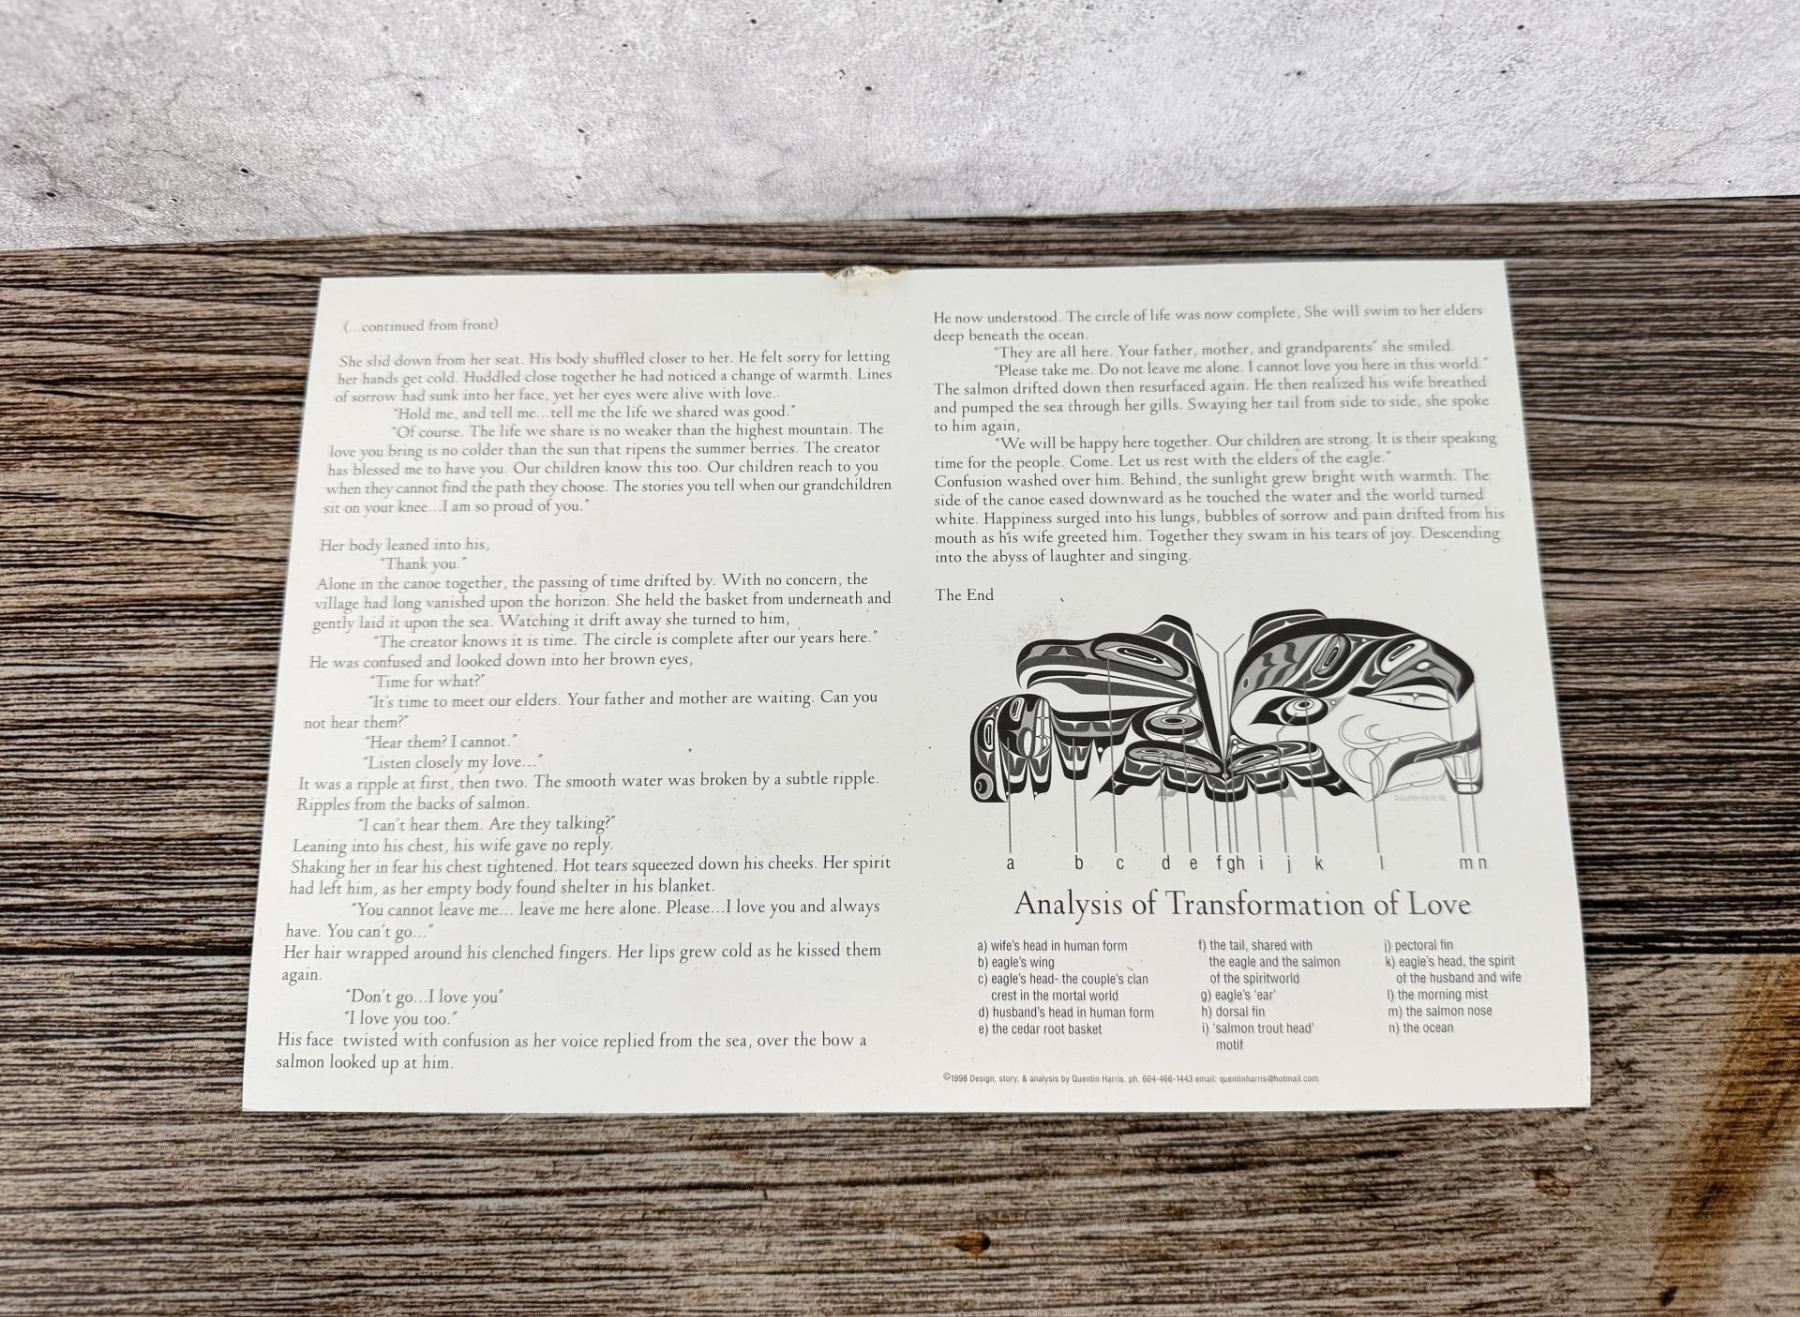 (...continued from front)
She slid down from her seat. His body shuffled closer to her. He felt sorry for letting
her hands get cold. Huddled close together he had noticed a change of warmth. Lines
of sorrow had sunk into her face, yet her eyes were alive with love..
"Hold me, and tell me...tell me the life we shared was good."
"Of course. The life we share is no weaker than the highest mountain. The
love you bring is no colder than the sun that ripens the summer berries. The creator
has blessed me to have you. Our children know this too. Our children reach to you
when they cannot find the path they choose. The stories you tell when our grandchildren
sit on your knee...I am so proud of you."
Her body leaned into his,
"Thank you."
Alone in the canoe together, the passing of time drifted by. With no concern, the
village had long vanished upon the horizon. She held the basket from underneath and
gently laid it upon the sea. Watching it drift away she turned to him,
"The creator knows it is time. The circle is complete after our years here."
He was confused and looked down into her brown eyes,
"Time for what?"
"It's time to meet our elders. Your father and mother are waiting. Can you
not hear them?"
"Hear them? I cannot."
"Listen closely my love..."
It was a ripple at first, then two. The smooth water was broken by a subtle ripple.
Ripples from the backs of salmon.
"I can't hear them. Are they talking?"
Leaning into his chest, his wife gave no reply.
Shaking her in fear his chest tightened. Hot tears squeezed down his cheeks. Her spirit
had left him, as her empty body found shelter in his blanket.
"You cannot leave me... leave me here alone. Please...I love you and always
have. You can't go..."
Her hair wrapped around his clenched fingers. Her lips grew cold as he kissed them
again.
"Don't go...I love you"
"I love you too."
His face twisted with confusion as her voice replied from the sea, over the bow a
salmon looked up at him.
He now understood. The circle of life was now complete, She will swim to her elders
deep beneath the ocean.
"They are all here. Your father, mother, and grandparents" she smiled.
"Please take me. Do not leave me alone. I cannot love you here in this world."
The salmon drifted down then resurfaced again. He then realized his wife breathed
and pumped the sea through her gills. Swaying her tail from side to side, she spoke
to him again,
"We will be happy here together. Our children are strong. It is their speaking
time for the people. Come. Let us rest with the elders of the eagle."
Confusion washed over him. Behind, the sunlight grew bright with warmth. The
side of the canoe eased downward as he touched the water and the world turned
white. Happiness surged into his lungs, bubbles of sorrow and pain drifted from his
mouth as his wife greeted him. Together they swam in his tears of joy. Descending
into the abyss of laughter and singing.
The End
a b c d e f g h i j k l m n
Analysis of Transformation of Love
a) wife's head in human form
b) eagle's wing
c) eagle's head- the couple's clan
crest in the mortal world
d) husband's head in human form
e) the cedar root basket
f) the tail, shared with
the eagle and the salmon
of the spiritworld
g) eagle's 'ear'
h) dorsal fin
i) 'salmon trout head'
motif
j) pectoral fin
k) eagle's head, the spirit
of the husband and wife
l) the morning mist
m) the salmon nose
n) the ocean
©1998 Design, story, & analysis by Quentin Harris. ph. 604-466-1443 email: quentinharris@hotmail.com